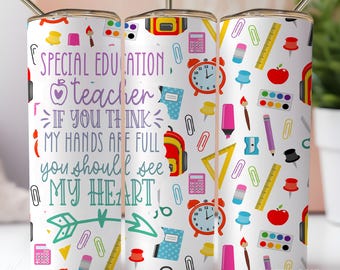 SPECIAL EDUCATION
teacher
IF YOU THINK
MY HANDS ARE FULL
you should see
MY HEART